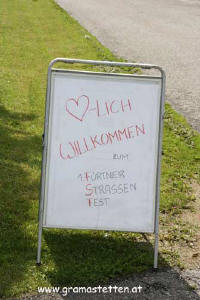 ♡-LICH
WILLKOMMEN
ZUM
1. FÜRTNER
STRASSEN
FEST
www.gramastetten.at